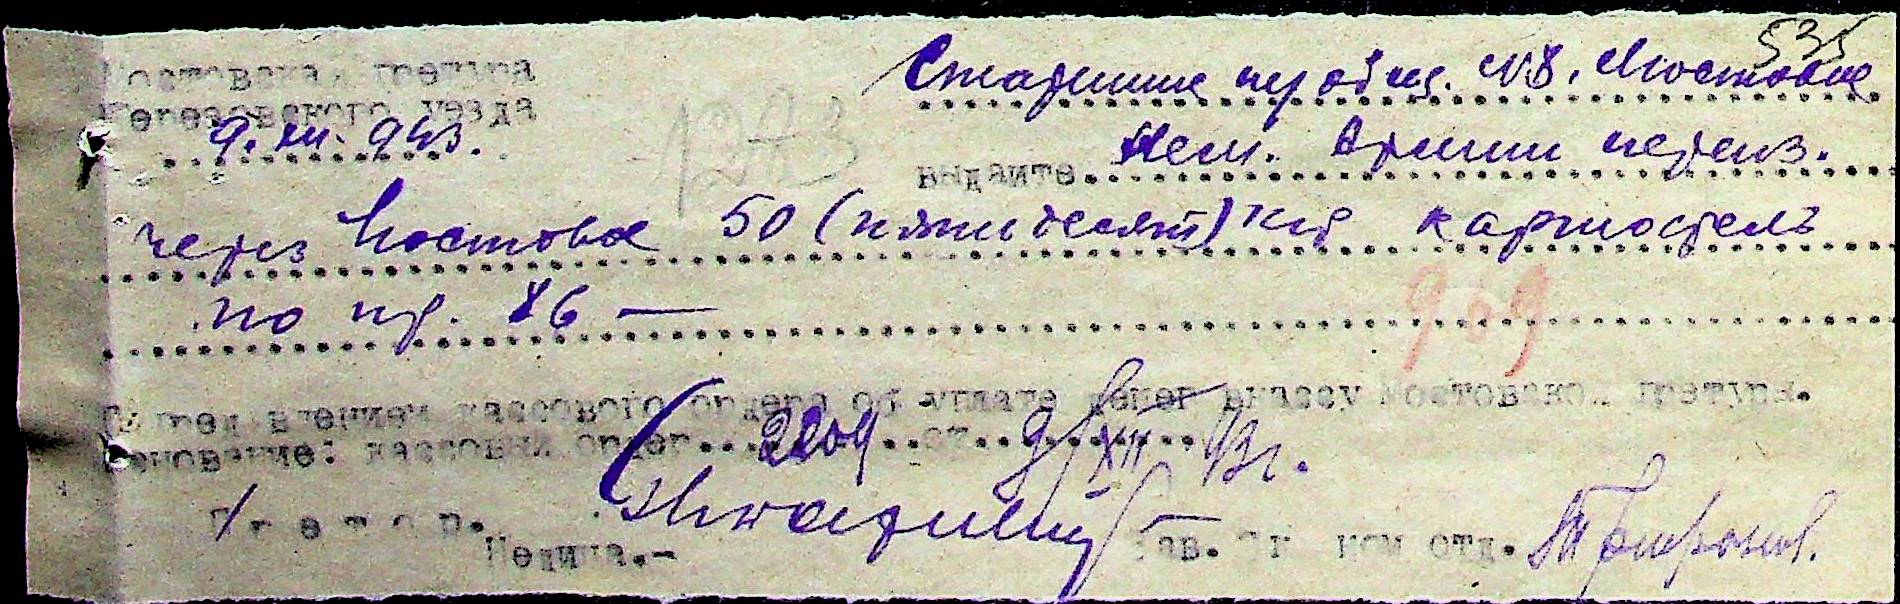 535
Мостовская претура
Березовского уезда
9. XII. 943.
1273
Старшине при общ. № 8. Мостовое
выдайте Нем. Армии через.
через Мостовое 50 (пятьдесят) кгр картофель
по пр. 86 —
909
влением кассового ордера об уплате денег вкассу Мостовско. претура.
основание: кассовый ордер 2209 от 9/XII 43г.
Претор.
Недина.-
Зав. Эк ком отд.